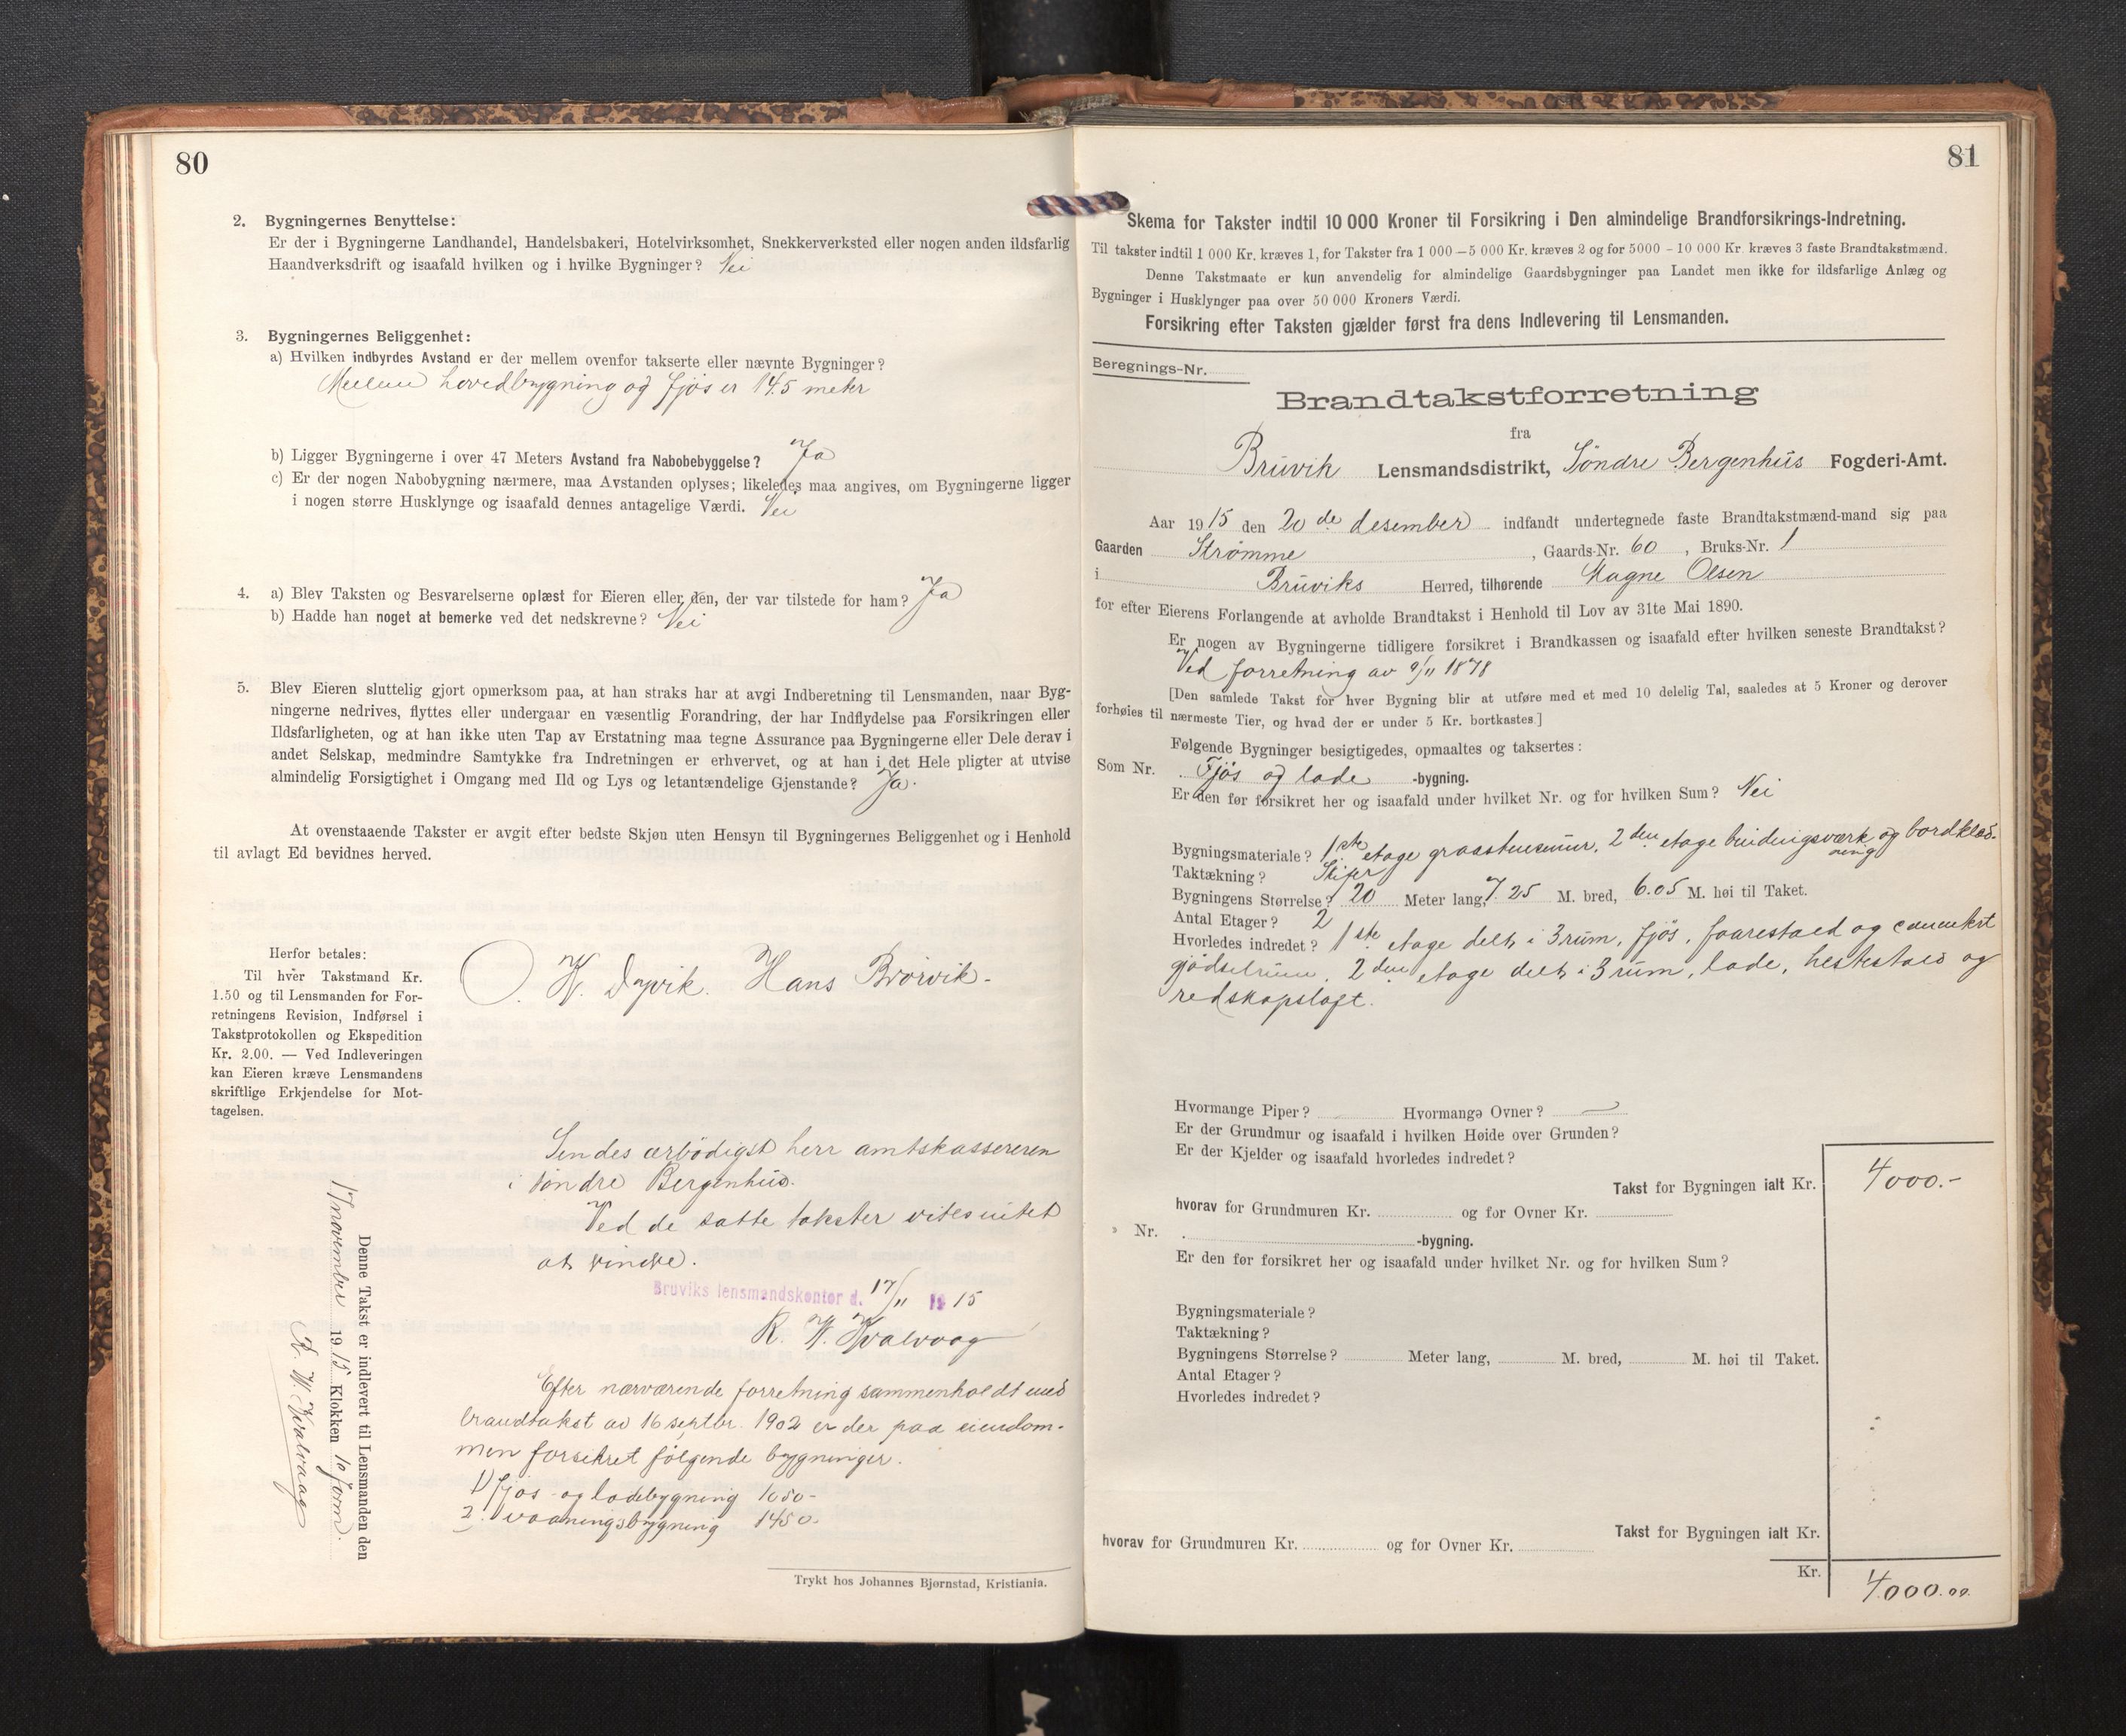 80
2. Bygningernes Benyttelse:
Er der i Bygningerne Landhandel, Handelsbakeri, Hotelvirksomhet, Snekkerverksted eller nogen anden ildsfarlig
Haandverksdrift og isaafald hvilken og i hvilke Bygninger? Nei
3. Bygningernes Beliggenhet:
a) Hvilken indbyrdes Avstand er der mellem ovenfor takserte eller nævnte Bygninger?
Mellem hovedbygning og fjøs er 14.5 meter
b) Ligger Bygningerne i over 47 Meters Avstand fra Nabobebyggelse? Ja
c) Er der nogen Nabobygning nærmere, maa Avstanden oplyses; likeledes maa angives, om Bygningerne ligger
i nogen større Husklynge og isaafald dennes antagelige Værdi. Nei
4. a) Blev Taksten og Besvarelserne oplæst for Eieren eller den, der var tilstede for ham? Ja
b) Hadde han noget at bemerke ved det nedskrevne? Nei
5. Blev Eieren sluttelig gjort opmerksom paa, at han straks har at avgi Indberetning til Lensmanden, naar Byg-
ningerne nedrives, flyttes eller undergaar en væsentlig Forandring, der har Indflydelse paa Forsikringen eller
Ildsfarligheten, og at han ikke uten Tap av Erstatning maa tegne Assurance paa Bygningerne eller Dele derav i
andet Selskap, medmindre Samtykke fra Indretningen er erhvervet, og at han i det Hele pligter at utvise
almindelig Forsigtighet i Omgang med Ild og Lys og letantændelige Gjenstande? Ja.
At ovenstaaende Takster er avgit efter bedste Skjøn uten Hensyn til Bygningernes Beliggenhet og i Henhold
til avlagt Ed bevidnes herved.
Herfor betales:
Til hver Takstmand Kr.
1.50 og til Lensmanden for For-
retningens Revision, Indførsel i
Takstprotokollen og Ekspedition
Kr. 2.00. — Ved Indleveringen
kan Eieren kræve Lensmandens
skriftlige Erkjendelse for Mot-
tagelsen.
O. W. Dyvik. Hans Brørvik-
Sendes ærbødigst herr amtskassereren
i søndre Bergenhus.
Ved de satte takster vites intet
at erindre.
Bruviks lensmandskontor d. 17/11 1915
R. W. Kvalvaag
Efter nærværende forretning sammenholdt med
brandtakst av 16 septbr. 1902 er der paa eiendom-
men forsikret følgende bygninger.
1) fjøs - og ladebygning 1050-
2. vaaningsbygning 1450-
Denne Takst er indlevert til Lensmanden den
17 november 1915 Klokken 10 form.
R. W. Kvalvaag
Trykt hos Johannes Bjørnstad, Kristiania.
81
Skema for Takster indtil 10 000 Kroner til Forsikring i Den almindelige Brandforsikrings-Indretning.
Til takster indtil 1 000 Kr. kræves 1, for Takster fra 1 000 — 5 000 Kr. kræves 2 og for 5000 - 10 000 Kr. kræves 3 faste Brandtakstmænd.
Denne Takstmaate er kun anvendelig for almindelige Gaardsbygninger paa Landet men ikke for ildsfarlige Anlæg og
Bygninger i Husklynger paa over 50 000 Kroners Værdi.
Forsikring efter Taksten gjælder først fra dens Indlevering til Lensmanden.
Beregnings-Nr.
Brandtakstforretning
fra
Bruvik Lensmandsdistrikt, Søndre Bergenhus Fogderi-Amt.
Aar 1915 den 20 de desember indfandt undertegnede faste Brandtakstmænd-mand sig paa
Gaarden Strømme, Gaards-Nr. 60, Bruks-Nr. 1
i Bruviks Herred, tilhørende Magne Olsen
for efter Eierens Forlangende at avholde Brandtakst i Henhold til Lov av 31te Mai 1890.
Er nogen av Bygningerne tidligere forsikret i Brandkassen og isaafald efter hvilken seneste Brandtakst?
Ved forretning av 9/11 1878
[Den samlede Takst for hver Bygning blir at utføre med et med 10 delelig Tal, saaledes at 5 Kroner og derover
forhøies til nærmeste Tier, og hvad der er under 5 Kr. bortkastes.]
Følgende Bygninger besigtigedes, opmaaltes og taksertes:
Som Nr. Fjøs og lade -bygning.
Er den før forsikret her og isaafald under hvilket Nr. og for hvilken Sum? Nei
Bygningsmateriale? 1ste etage graastensmur, 2den etage bindingsværk og bordklæd-
ning
Taktækning? Skifer
Bygningens Størrelse? 20 Meter lang, 7.25 M. bred, 6.05 M. høi til Taket.
Antal Etager? 2
Hvorledes indredet? 1ste etage delt i 3 rum, fjøs, faarestald og cementert
gjødselrum. 2den etage delt i 3 rum, lade, hestestald og
redskapsloft.
Hvormange Piper? Hvormange Ovner? —
Er der Grundmur og isaafald i hvilken Høide over Grunden?
Er der Kjelder og isaafald hvorledes indredet?
Takst for Bygningen ialt Kr. 4000.-
hvorav for Grundmuren Kr. og for Ovner Kr.
» Nr. -bygning.
Er den før forsikret her og isaafald under hvilket Nr. og for hvilken Sum?
Bygningsmateriale?
Taktækning?
Bygningens Størrelse? Meter lang, M. bred, M. høi til Taket.
Antal Etager?
Hvorledes indredet?
Takst for Bygningen ialt Kr.
hvorav for Grundmuren Kr. og for Ovner Kr.
Kr. 4.000.00